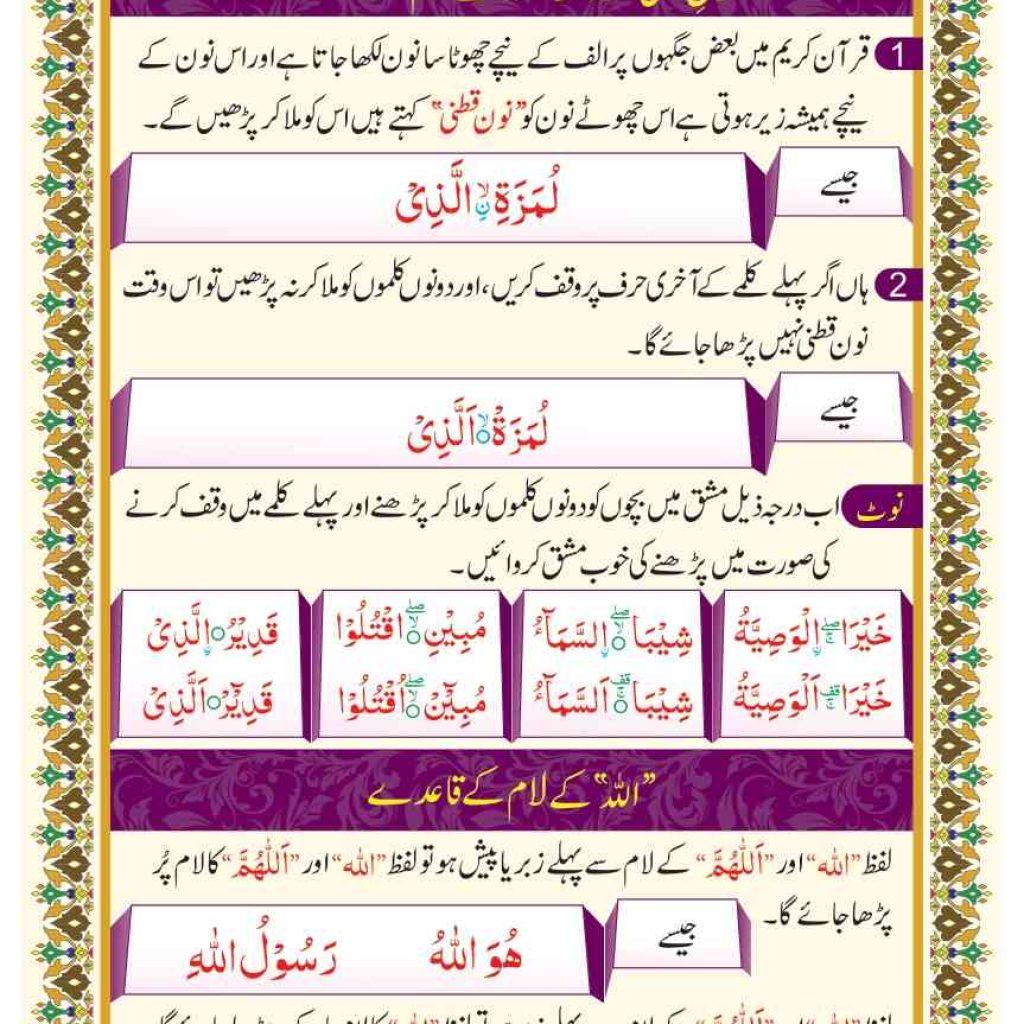 1 قرآن کریم میں بعض جگہوں پر الف کے نیچے چھوٹا سا نون لکھا جاتا ہے اور اس نون کے
نیچے ہمیشہ زیر ہوتی ہے اس چھوٹے نون کو ”نون قطنی“ کہتے ہیں اس کو ملا کر پڑھیں گے۔
جیسے
لُمَزَةِ ۙ نِ الَّذِیْ
2 ہاں اگر پہلے کلمے کے آخری حرف پر وقف کریں، اور دونوں کلموں کو ملا کر نہ پڑھیں تو اس وقت
نون قطنی نہیں پڑھا جائے گا۔
جیسے
لُمَزَةْ ۙ اَلَّذِیْ
نوٹ اب درجہ ذیل مشق میں بچوں کو دونوں کلموں کو ملا کر پڑھنے اور پہلے کلمے میں وقف کرنے
کی صورت میں پڑھنے کی خوب مشق کروائیں۔
خَیْرَا ۖۚ نِ الْوَصِیَّةُ شِیْبَا ۖ نِ السَّمَآءُ مُبِیْنِ ۖ اقْتُلُوْا قَدِیْرُ نِ الَّذِیْ
خَیْرَا اَلْوَصِیَّةُ شِیْبَا اَلسَّمَآءُ مُبِیْنْ ۖ اُقْتُلُوْا قَدِیْرْ اَلَّذِیْ
”اللہ“ کے لام کے قاعدے
لفظ ”اللہ“ اور ”اَللّٰهُمَّ“ کے لام سے پہلے زبر یا پیش ہو تو لفظ ”اللہ“ اور ”اَللّٰهُمَّ“ کا لام پُر
پڑھا جائے گا۔
جیسے
هُوَ اللّٰهُ رَسُوْلُ اللّٰهِ